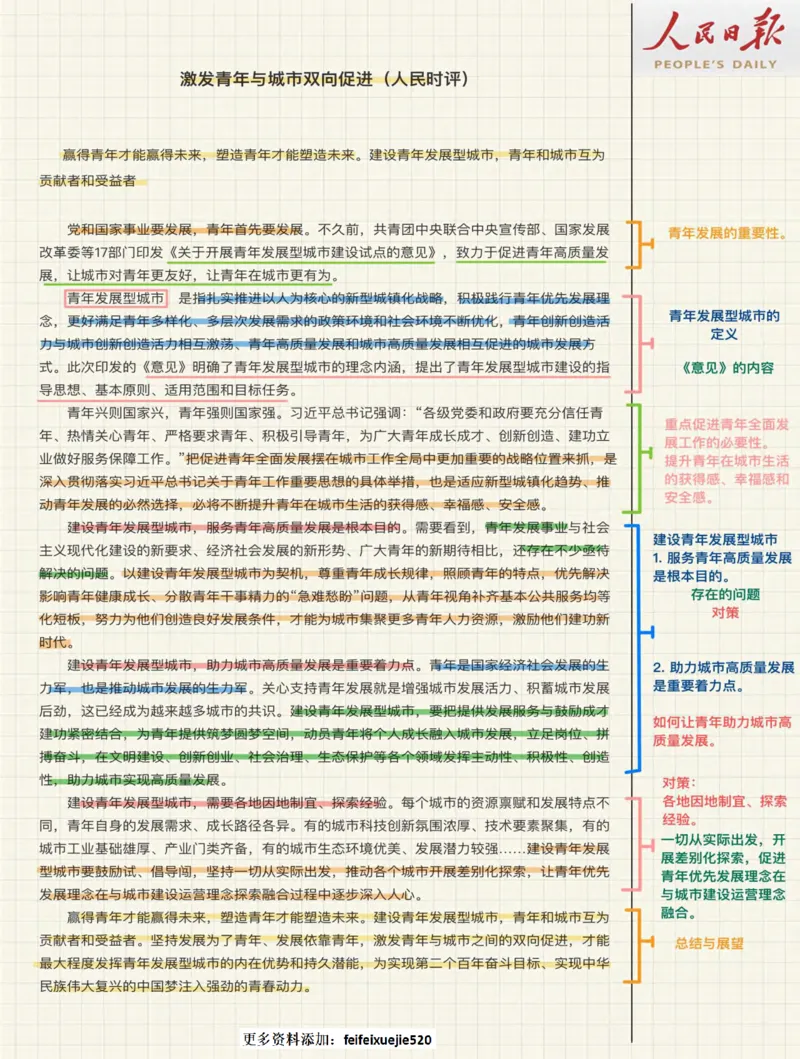 人民日报
PEOPLE'S DAILY
激发青年与城市双向促进（人民时评）
赢得青年才能赢得未来，塑造青年才能塑造未来。建设青年发展型城市，青年和城市互为
贡献者和受益者
党和国家事业要发展，青年首先要发展。不久前，共青团中央联合中央宣传部、国家发展
改革委等17部门印发《关于开展青年发展型城市建设试点的意见》，致力于促进青年高质量发
展，让城市对青年更友好，让青年在城市更有为。
青年发展型城市 是指扎实推进以人为核心的新型城镇化战略，积极践行青年优先发展理
念，更好满足青年多样化、多层次发展需求的政策环境和社会环境不断优化，青年创新创造活
力与城市创新创造活力相互激荡、青年高质量发展和城市高质量发展相互促进的城市发展方
式。此次印发的《意见》明确了青年发展型城市的理念内涵，提出了青年发展型城市建设的指
导思想、基本原则、适用范围和目标任务。
青年兴则国家兴，青年强则国家强。习近平总书记强调：“各级党委和政府要充分信任青
年、热情关心青年、严格要求青年、积极引导青年，为广大青年成长成才、创新创造、建功立
业做好服务保障工作。”把促进青年全面发展摆在城市工作全局中更加重要的战略位置来抓，是
深入贯彻落实习近平总书记关于青年工作重要思想的具体举措，也是适应新型城镇化趋势、推
动青年发展的必然选择，必将不断提升青年在城市生活的获得感、幸福感、安全感。
建设青年发展型城市，服务青年高质量发展是根本目的。需要看到，青年发展事业与社会
主义现代化建设的新要求、经济社会发展的新形势、广大青年的新期待相比，还存在不少亟待
解决的问题。以建设青年发展型城市为契机，尊重青年成长规律，照顾青年的特点，优先解决
影响青年健康成长、分散青年干事精力的“急难愁盼”问题，从青年视角补齐基本公共服务均等
化短板，努力为他们创造良好发展条件，才能为城市集聚更多青年人力资源，激励他们建功新
时代。
建设青年发展型城市，助力城市高质量发展是重要着力点。青年是国家经济社会发展的生
力军，也是推动城市发展的生力军。关心支持青年发展就是增强城市发展活力、积蓄城市发展
后劲，这已经成为越来越多城市的共识。建设青年发展型城市，要把提供发展服务与鼓励成才
建功紧密结合，为青年提供筑梦圆梦空间，动员青年将个人成长融入城市发展，立足岗位、拼
搏奋斗，在文明建设、创新创业、社会治理、生态保护等各个领域发挥主动性、积极性、创造
性，助力城市实现高质量发展。
建设青年发展型城市，需要各地因地制宜、探索经验。每个城市的资源禀赋和发展特点不
同，青年自身的发展需求、成长路径各异。有的城市科技创新氛围浓厚、技术要素聚集，有的
城市工业基础雄厚、产业门类齐备，有的城市生态环境优美、发展潜力较强……建设青年发展
型城市要鼓励试、倡导闯，坚持一切从实际出发，推动各个城市开展差别化探索，让青年优先
发展理念在与城市建设运营理念探索融合过程中逐步深入人心。
赢得青年才能赢得未来，塑造青年才能塑造未来。建设青年发展型城市，青年和城市互为
贡献者和受益者。坚持发展为了青年、发展依靠青年，激发青年与城市之间的双向促进，才能
最大程度发挥青年发展型城市的内在优势和持久潜能，为实现第二个百年奋斗目标、实现中华
民族伟大复兴的中国梦注入强劲的青春动力。
青年发展的重要性。
青年发展型城市的
定义
《意见》的内容
重点促进青年全面发
展工作的必要性。
提升青年在城市生活
的获得感、幸福感和
安全感。
建设青年发展型城市
1. 服务青年高质量发展
是根本目的。
存在的问题
对策
2. 助力城市高质量发展
是重要着力点。
如何让青年助力城市高
质量发展。
对策：
各地因地制宜、探索
经验。
一切从实际出发，开
展差别化探索，促进
青年优先发展理念在
与城市建设运营理念
融合。
总结与展望
更多资料添加：feifeixuejie520